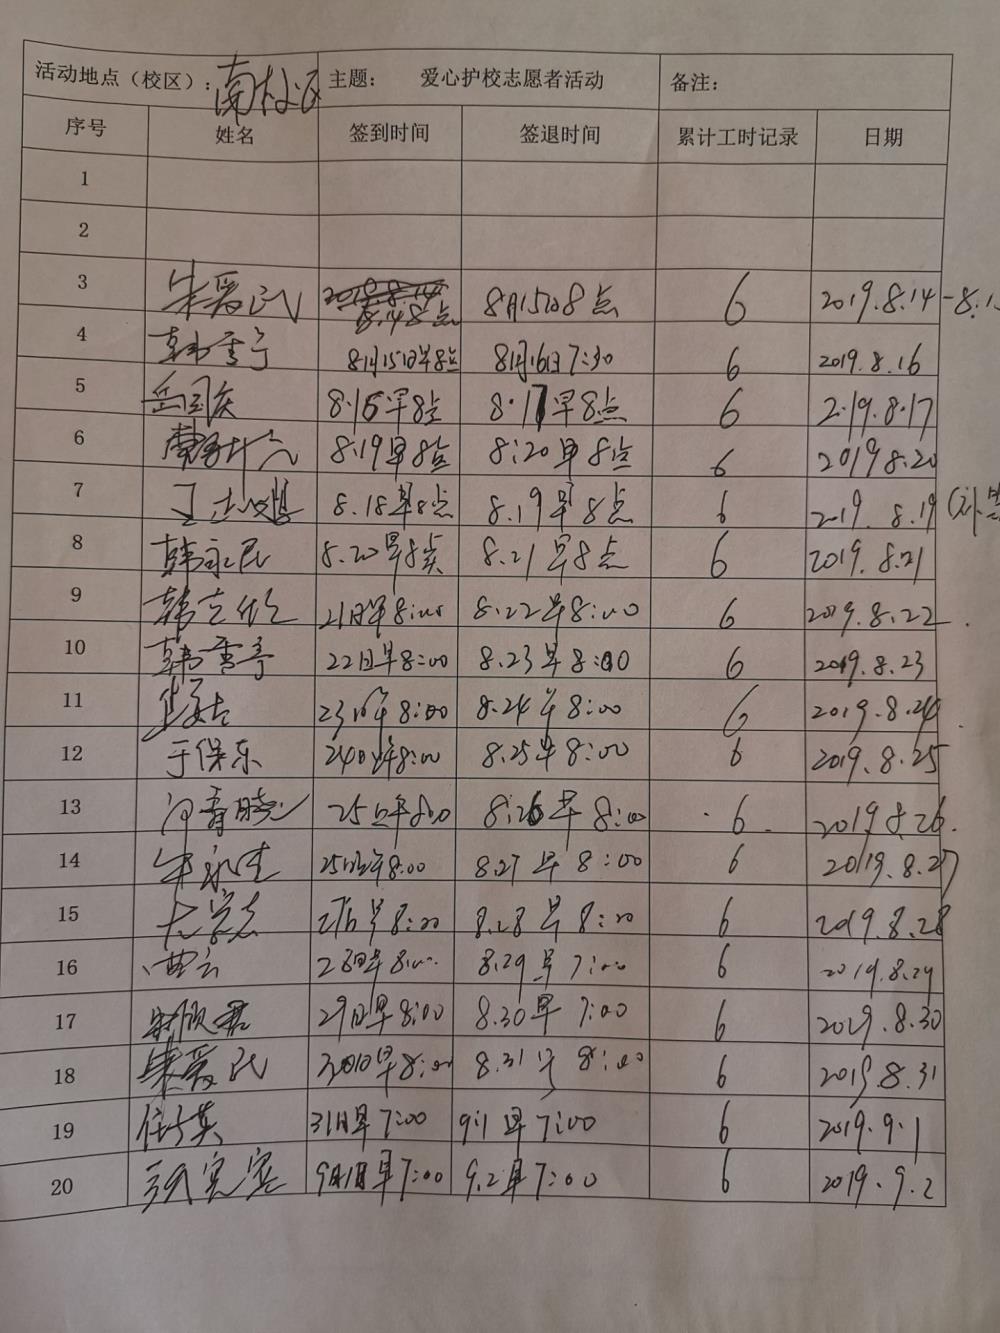 活动地点（校区）：南校区 主题： 爱心护校志愿者活动 备注：
序号 姓名 签到时间 签退时间 累计工时记录 日期
1
2
3 朱爱民 8.14 8点 8月15日8点 6 2019.8.14-8.1
4 韩香亭 8月15日早8点 8月16日7:30 6 2019.8.16
5 岳国庆 8.16早8点 8.17早8点 6 2.19.8.17
6 8.19早8点 8:20早8点 6 2019 8.20
7 王志鸿 8.18早8点 8.19早8点 6 2019. 8.19
8 韩永民 8.20早8点 8.21早8点 6 2019.8.21
9 韩 21日早8:00 8.22早8:00 6 2019.8.22.
10 韩香亭 22日早8:00 8.23早8:00 6 2019.8.23
11 23日早8:00 8.24早8:00 6 2019.8.24.
12 于保东 24日早8:00 8.25早8:00 6 2019.8.25
13 25日早800 8.26早8:00 6 2019 8.26.
14 8:00 8.27早8:00 6 2019.8.27
15 早8:00 8.28早8:00 6 2019.8.28
16 曹云 28日早8:00 8.29早7:00 6 2019.8.29
17 29日早8:00 8.30早7:00 6 2019.8.30
18 朱爱民 30日早8:00 8.31早8:00 6 2019.8.31
19 任 英 31日早7:00 9.1早7:00 6 2019.9.1
20 张宪宾 9月1日早7:00 9.2早7:00 6 2019.9.2